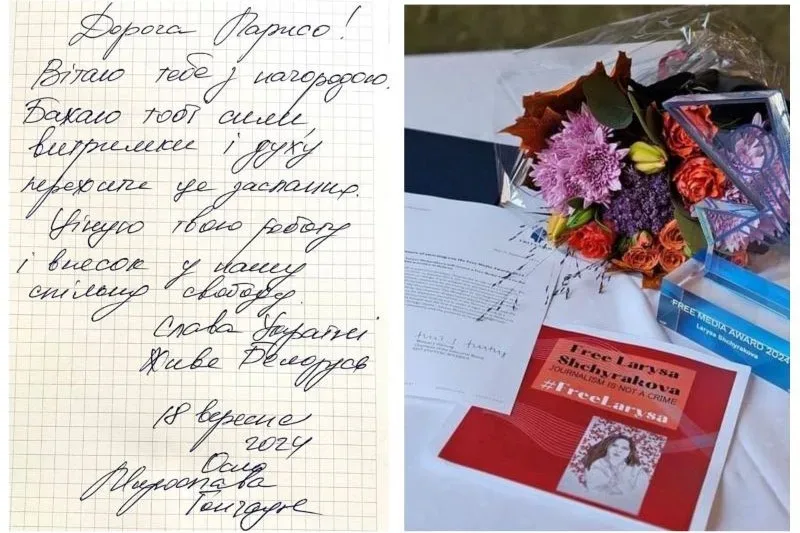 Дорога Ларисо!
Вітаю тебе з нагородою.
Бажаю тобі сили
витримки і духу
пережити це заслання.
Ціную твою роботу
і внесок у нашу
спільну свободу.
Слава Україні
Живе Білорусь
18 вересня
2024
Осло
Мирослава
Гонгадзе
Free Larysa
Shchyrakova
JOURNALISM IS NOT A CRIME
#FreeLarysa
FREE MEDIA AWARD 2024
Larysa Shchyrakova